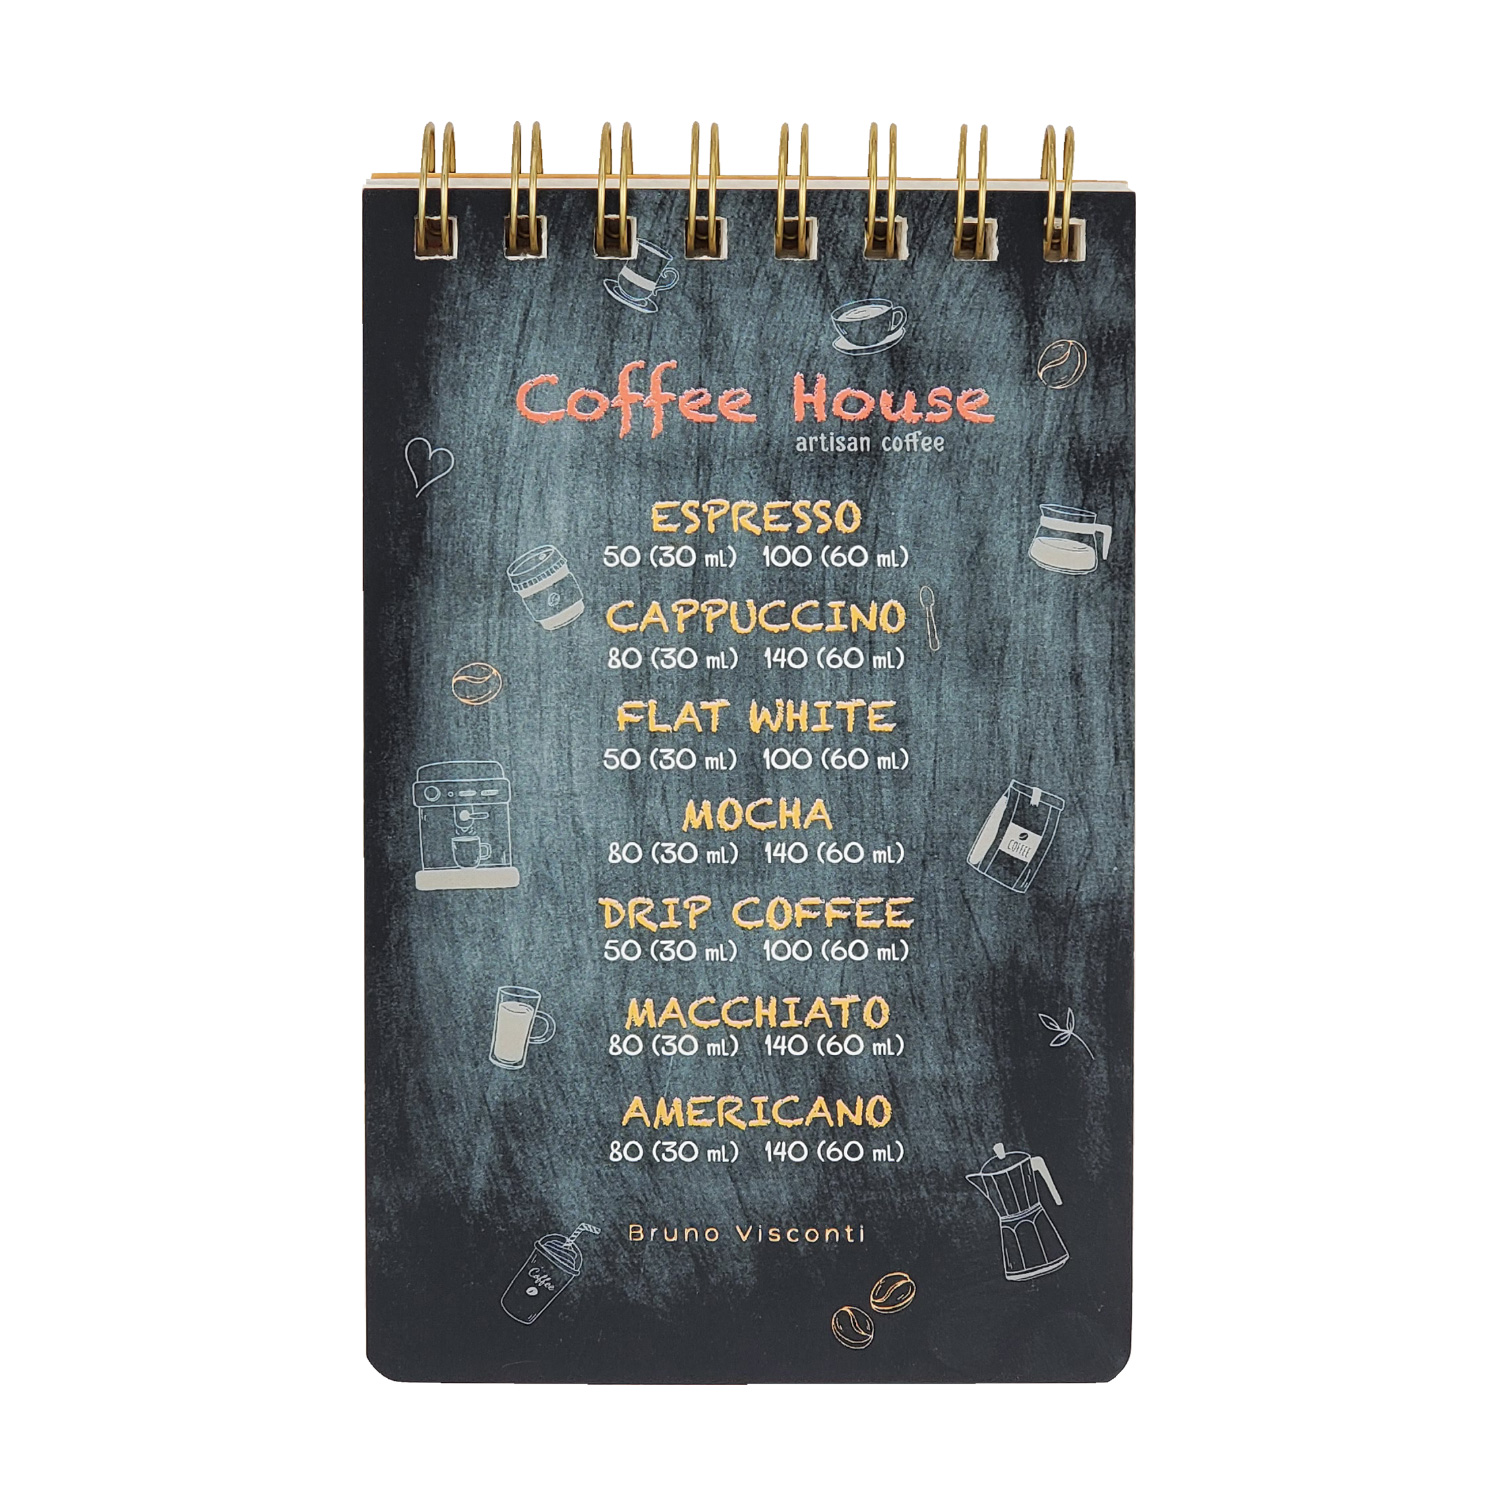 Coffee House
artisan coffee
ESPRESSO
50 (30 mL) 100 (60 mL)
CAPPUCCINO
80 (30 mL) 140 (60 mL)
FLAT WHITE
50 (30 mL) 100 (60 mL)
MOCHA
80 (30 mL) 140 (60 mL)
COFFEE
DRIP COFFEE
50 (30 mL) 100 (60 mL)
MACCHIATO
80 (30 mL) 140 (60 mL)
AMERICANO
80 (30 mL) 140 (60 mL)
Bruno Visconti
Coffee